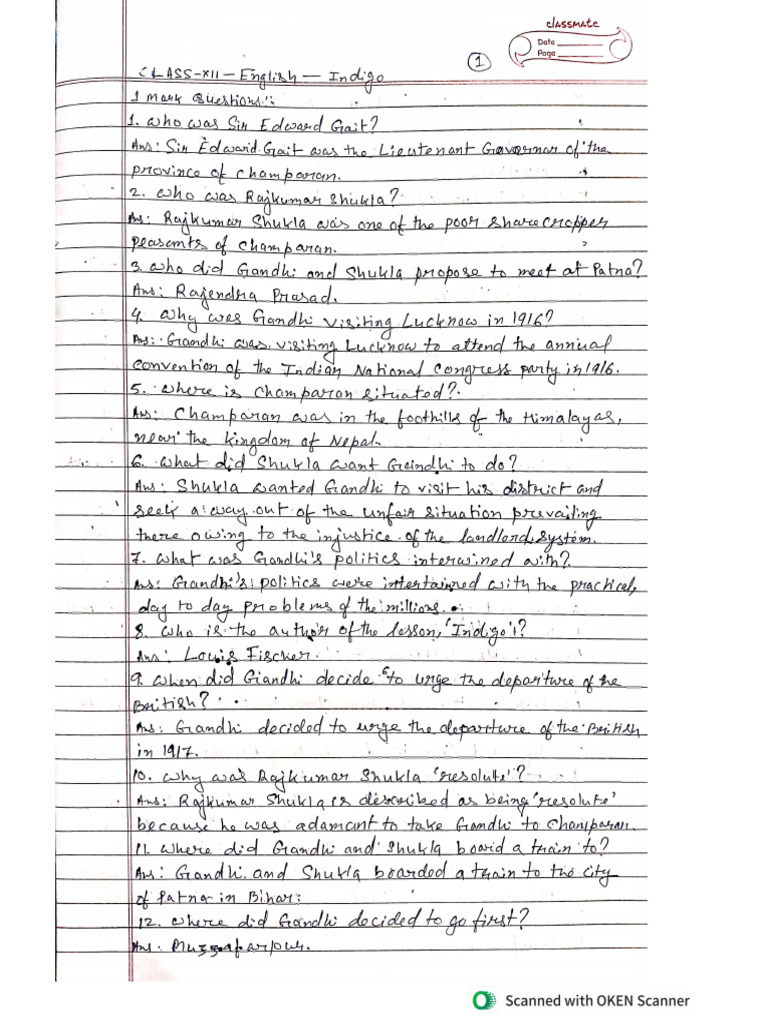 classmate
Date
Page
1
CLASS-XII - English - Indigo
1 mark Questions::
1. who was Sir Edward Gait?
Ans: Sir Edward Gait was the Lieutenant Governor of the
province of champaran.
2. who was Rajkumar Shukla?
Ans: Rajkumar Shukla was one of the poor sharecropper
peasants of champaran.
3. who did Gandhi and Shukla propose to meet at Patna?
Ans: Rajendra Prasad.
4. Why was Gandhi visiting Lucknow in 1916?
Ans: Gandhi was visiting Lucknow to attend the annual
convention of the Indian National congress party in 1916.
5. where is champaran situated?
Ans: Champaran was in the foothills of the Himalayas,
near the kingdom of Nepal.
6. what did Shukla want Gandhi to do?
Ans: Shukla wanted Gandhi to visit his district and
seek a way out of the unfair situation prevailing
there owing to the injustice of the landlord system.
7. what was Gandhi's politics interwined with?
Ans: Gandhi's politics were intertained with the practical,
day to day problems of the millions.
8. who is the author of the lesson, 'Indigo'?
Ans: Louis Fischer.
9. when did Gandhi decide to urge the departure of the
British?
Ans: Gandhi decided to urge the departure of the British
in 1917.
10. why was Rajkumar Shukla 'resolute'?
Ans: Rajkumar Shukla is described as being 'resolute'
because he was adamant to take Gandhi to Champaran.
11. where did Gandhi and Shukla board a train to?
Ans: Gandhi and Shukla boarded a train to the city
of Patna in Bihar:
12. where did Gandhi decided to go first?
Ans: Muzzafarpur.
Scanned with OKEN Scanner